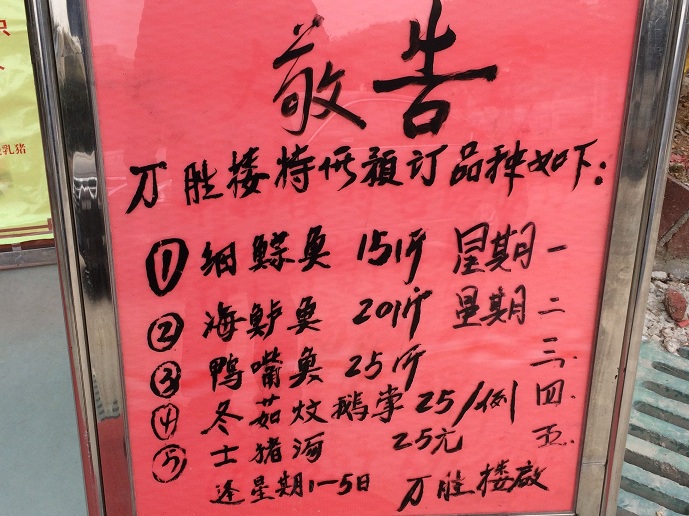 敬告
万胜楼特价预订品种如下:
① 细鲩鱼 15/斤 星期一
② 海鲈鱼 20/斤 星期 二
③ 鸭嘴鱼 25/斤 三.
④ 冬菇炆鹅掌 25/例 四.
⑤ 士猪汤 25元 五.
逢星期1—5日 万胜楼启
乳猪